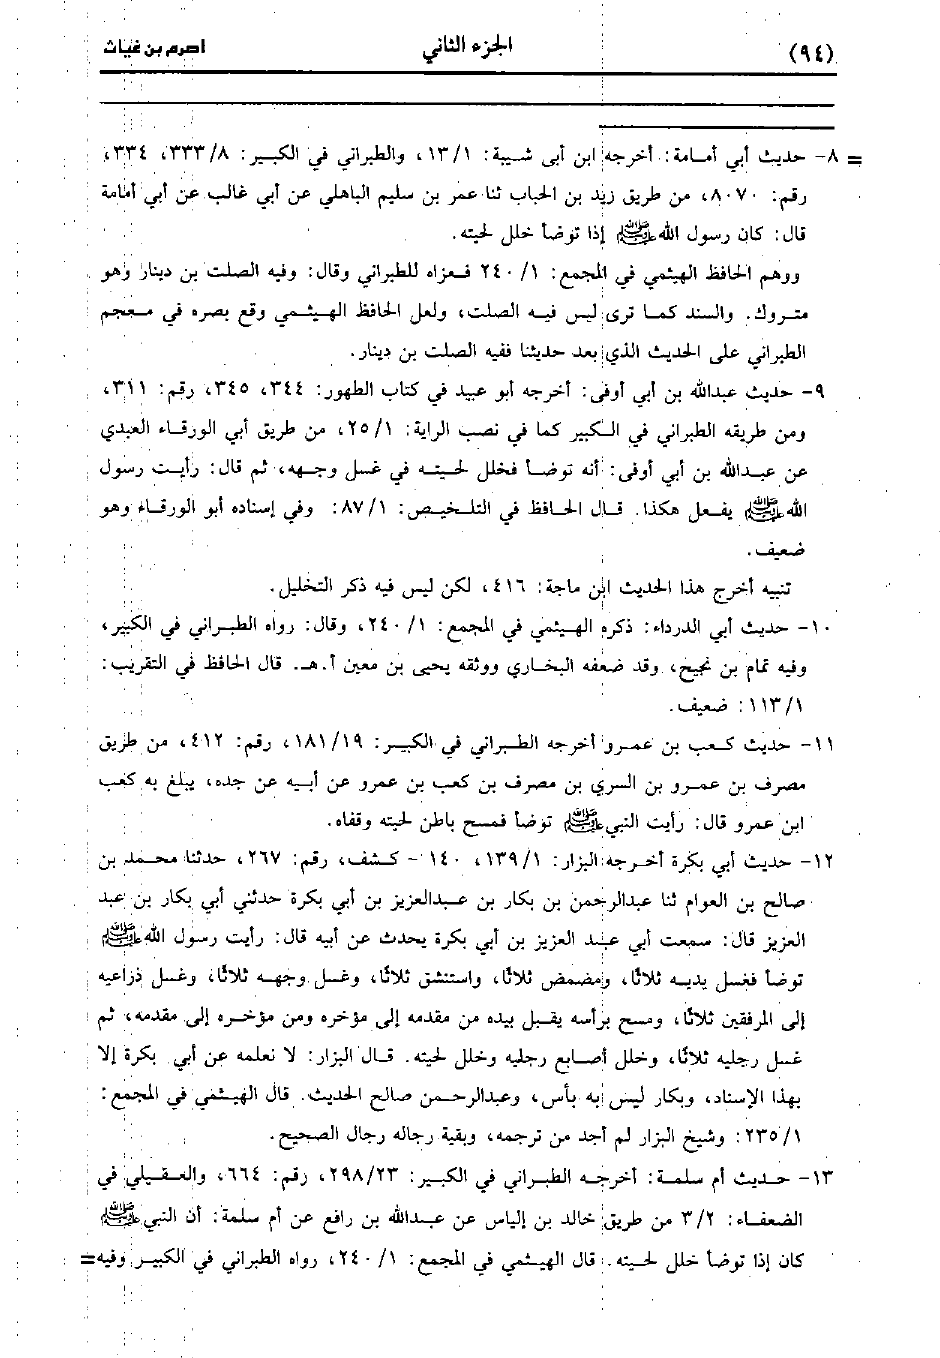 (٩٤) الجزء الثاني اصرم بن غياث
= ٨- حديث أبي أمامة: أخرجه ابن أبى شيبة: ١٣/١، والطبراني في الكبير: ٣٣٣/٨، ٣٣٤،
رقم: ٨٠٧٠، من طريق زيد بن الحباب ثنا عمر بن سليم الباهلي عن أبي غالب عن أبي أمامة
قال: كان رسول الله ﷺ إذا توضأ خلل لحيته.
ووهم الحافظ الهيثمي في المجمع: ٢٤٠/١ فعزاه للطبراني وقال: وفيه الصلت بن دينار وهو
متروك. والسند كما ترى ليس فيه الصلت، ولعل الحافظ الهيثمي وقع بصره في معجم
الطبراني على الحديث الذي بعد حديثنا ففيه الصلت بن دينار.
٩- حديث عبدالله بن أبي أوفى: أخرجه أبو عبيد في كتاب الطهور: ٣٤٤، ٣٤٥، رقم: ٣١١،
ومن طريقه الطبراني في الكبير كما في نصب الراية: ٢٥/١، من طريق أبي الورقاء العبدي
عن عبدالله بن أبي أوفى: أنه توضأ فخلل لحيته في غسل وجهه، ثم قال: رأيت رسول
الله ﷺ يفعل هكذا. قال الحافظ في التلخيص: ٨٧/١: وفي إسناده أبو الورقاء وهو
ضعيف.
تنبيه أخرج هذا الحديث ابن ماجة: ٤١٦، لكن ليس فيه ذكر التخليل.
١٠- حديث أبي الدرداء: ذكره الهيثمي في المجمع: ٢٤٠/١، وقال: رواه الطبراني في الكبير،
وفيه تمام بن نجيح، وقد ضعفه البخاري ووثقه يحيى بن معين أ.هـ. قال الحافظ في التقريب:
١١٣/١: ضعيف.
١١- حديث كعب بن عمرو أخرجه الطبراني في الكبير: ١٨١/١٩، رقم: ٤١٢، من طريق
مصرف بن عمرو بن السري بن مصرف بن كعب بن عمرو عن أبيه عن جده، يبلغ به كعب
ابن عمرو قال: رأيت النبي ﷺ توضأ فمسح باطن لحيته وقفاه.
١٢- حديث أبي بكرة أخرجه البزار: ١٣٩/١، ١٤٠ - كشف، رقم: ٢٦٧، حدثنا محمد بن
صالح بن العوام ثنا عبدالرحمن بن بكار بن عبدالعزيز بن أبي بكرة حدثني أبي بكار بن عبد
العزيز قال: سمعت أبي عبد العزيز بن أبي بكرة يحدث عن أبيه قال: رأيت رسول الله ﷺ
توضأ فغسل يديه ثلاثًا، ومضمض ثلاثًا، واستنشق ثلاثًا، وغسل وجهه ثلاثًا، وغسل ذراعيه
إلى المرفقين ثلاثًا، ومسح برأسه يقبل بيده من مقدمه إلى مؤخره ومن مؤخره إلى مقدمه، ثم
غسل رجليه ثلاثًا، وخلل أصابع رجليه وخلل لحيته. قال البزار: لا نعلمه عن أبي بكرة إلا
بهذا الإسناد، وبكار ليس به بأس، وعبدالرحمن صالح الحديث. قال الهيثمي في المجمع:
٢٣٥/١: وشيخ البزار لم أجد من ترجمه، وبقية رجاله رجال الصحيح.
١٣- حديث أم سلمة: أخرجه الطبراني في الكبير: ٢٩٨/٢٣، رقم: ٦٦٤، والعقيلي في
الضعفاء: ٣/٢ من طريق خالد بن إلياس عن عبدالله بن رافع عن أم سلمة: أن النبي ﷺ
كان إذا توضأ خلل لحيته. قال الهيثمي في المجمع: ٢٤٠/١، رواه الطبراني في الكبير وفيه=